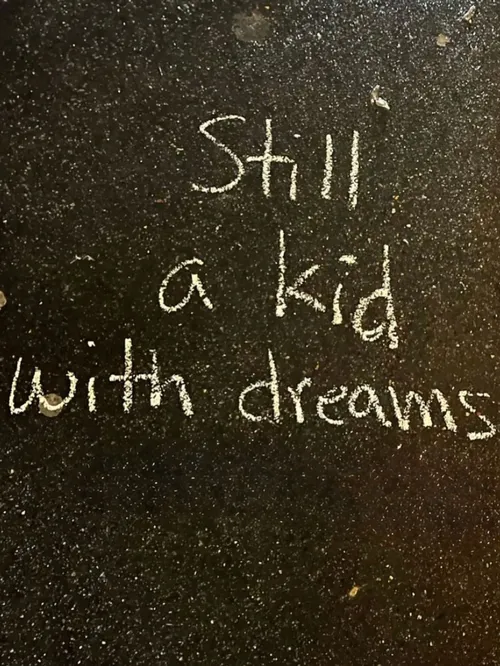 Still
a kid
with dreams